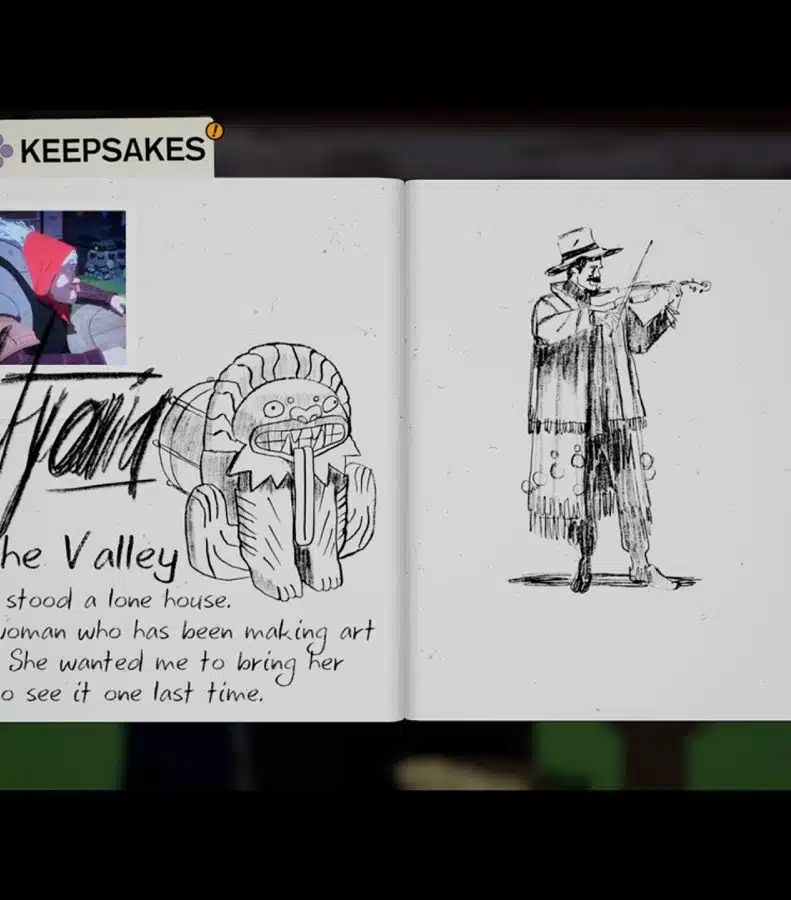 KEEPSAKES
he Valley
stood a lone house.
woman who has been making art
She wanted me to bring her
o see it one last time.